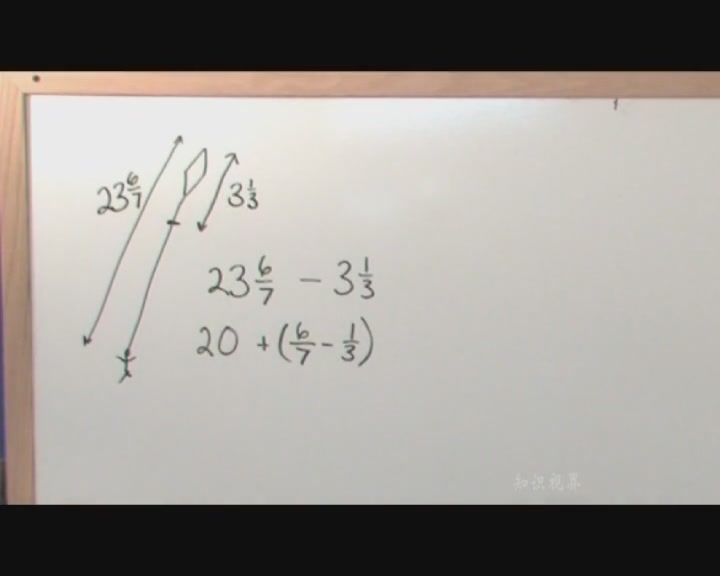 23 6/7
3 1/3
23 6/7 - 3 1/3
20 + (6/7 - 1/3)
知识视界